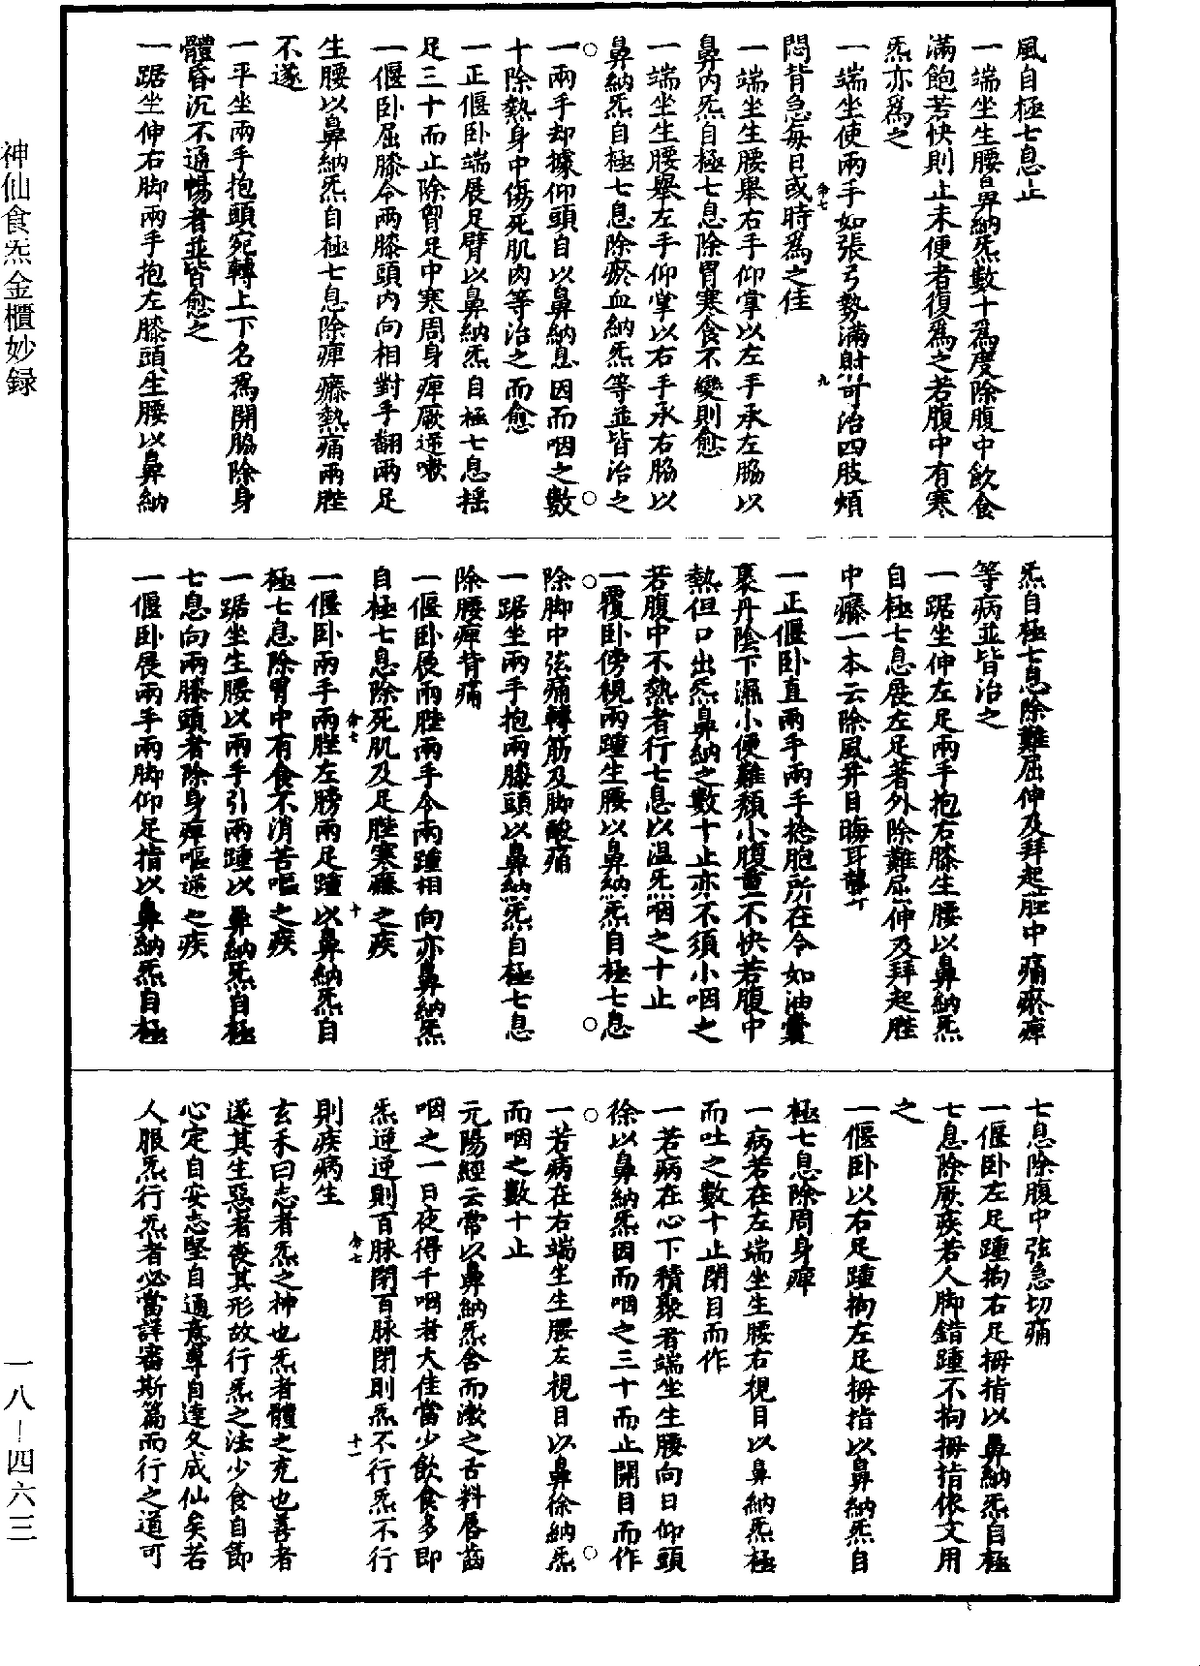 風自極七息止
一端坐生腰鼻納炁數十為度除腹中飲食
滿飽若快則止未便者復為之若腹中有寒
炁亦為之
一端坐使兩手如張弓勢滿射可治四肢煩
悶背急每日或時為之佳
一端坐生腰舉右手仰掌以左手承左脇以
鼻內炁自極七息除胃寒食不變則愈
一端坐生腰舉左手仰掌以右手承右脇以
鼻納炁自極七息除瘀血納炁等並皆治之
一兩手却據仰頭自以鼻納息因而咽之數
十除熱身中傷死肌肉等治之而愈
一正偃卧端展足臂以鼻納炁自極七息揺
足三十而止除胷足中寒周身痺厥逆嗽
一偃卧屈膝令兩膝頭內向相對手翻兩足
生腰以鼻納炁自極七息除痺㿏熱痛兩脛
不遂
一平坐兩手抱頭宛轉上下名為開脇除身
體昏沉不通暢者並皆愈之
一踞坐伸右脚兩手抱左膝頭生腰以鼻納
炁自極七息除難屈伸及拜起脛中痛瘀痺
等病並皆治之
一踞坐伸左足兩手抱右膝生腰以鼻納炁
自極七息展左足著外除難屈伸及拜起脛
中㿏一本云除風并目晦耳聾
一正偃卧直兩手兩手捻胞所在令如油囊
裹丹陰下濕小便難頹小腹重不快若腹中
熱但口出炁鼻納之數十止亦不須小咽之
若腹中不熱者行七息以温炁咽之十止
一覆卧傍視兩踵生腰以鼻納炁自極七息
除脚中弦痛轉筋及脚酸痛
一踞坐兩手抱兩膝頭以鼻納炁自極七息
除腰痺背痛
一偃卧展兩脛兩手令兩踵相向亦鼻納炁
自極七息除死肌及足脛寒㿏之疾
一偃卧兩手兩脛左膀兩足踵以鼻納炁自
極七息除胃中有食不消苦嘔之疾
一踞坐生腰以兩手引兩踵以鼻納炁自極
七息向兩膝頭者除身痺嘔逆之疾
一偃卧展兩手兩脚仰足指以鼻納炁自極
七息除腹中弦急切痛
一偃卧左足踵拘右足拇指以鼻納炁自極
七息除厥疾若人脚錯踵不拘拇指依文用
之
一偃卧以右足踵拘左足拇指以鼻納炁自
極七息除周身痺
一病若在左端坐生腰右視目以鼻納炁極
而吐之數十止閉目而作
一若病在心下積聚者端坐生腰向日仰頭
徐以鼻納炁因而咽之三十而止開目而作
一若病在右端坐生腰左視目以鼻徐納炁
而咽之數十止
元陽經云常以鼻納炁含而漱之舌料唇齒
咽之一日夜得千咽者大佳當少飲食多即
炁逆逆則百脉閉百脉閉則炁不行炁不行
則疾病生
玄禾曰志者炁之神也炁者體之充也善者
遂其生惡者喪其形故行炁之法少食自節
心定自安志堅自通意專自達久成仙矣若
人服炁行炁者必當詳審斯篇而行之道可
神仙食炁金櫃妙録
一八—四六三